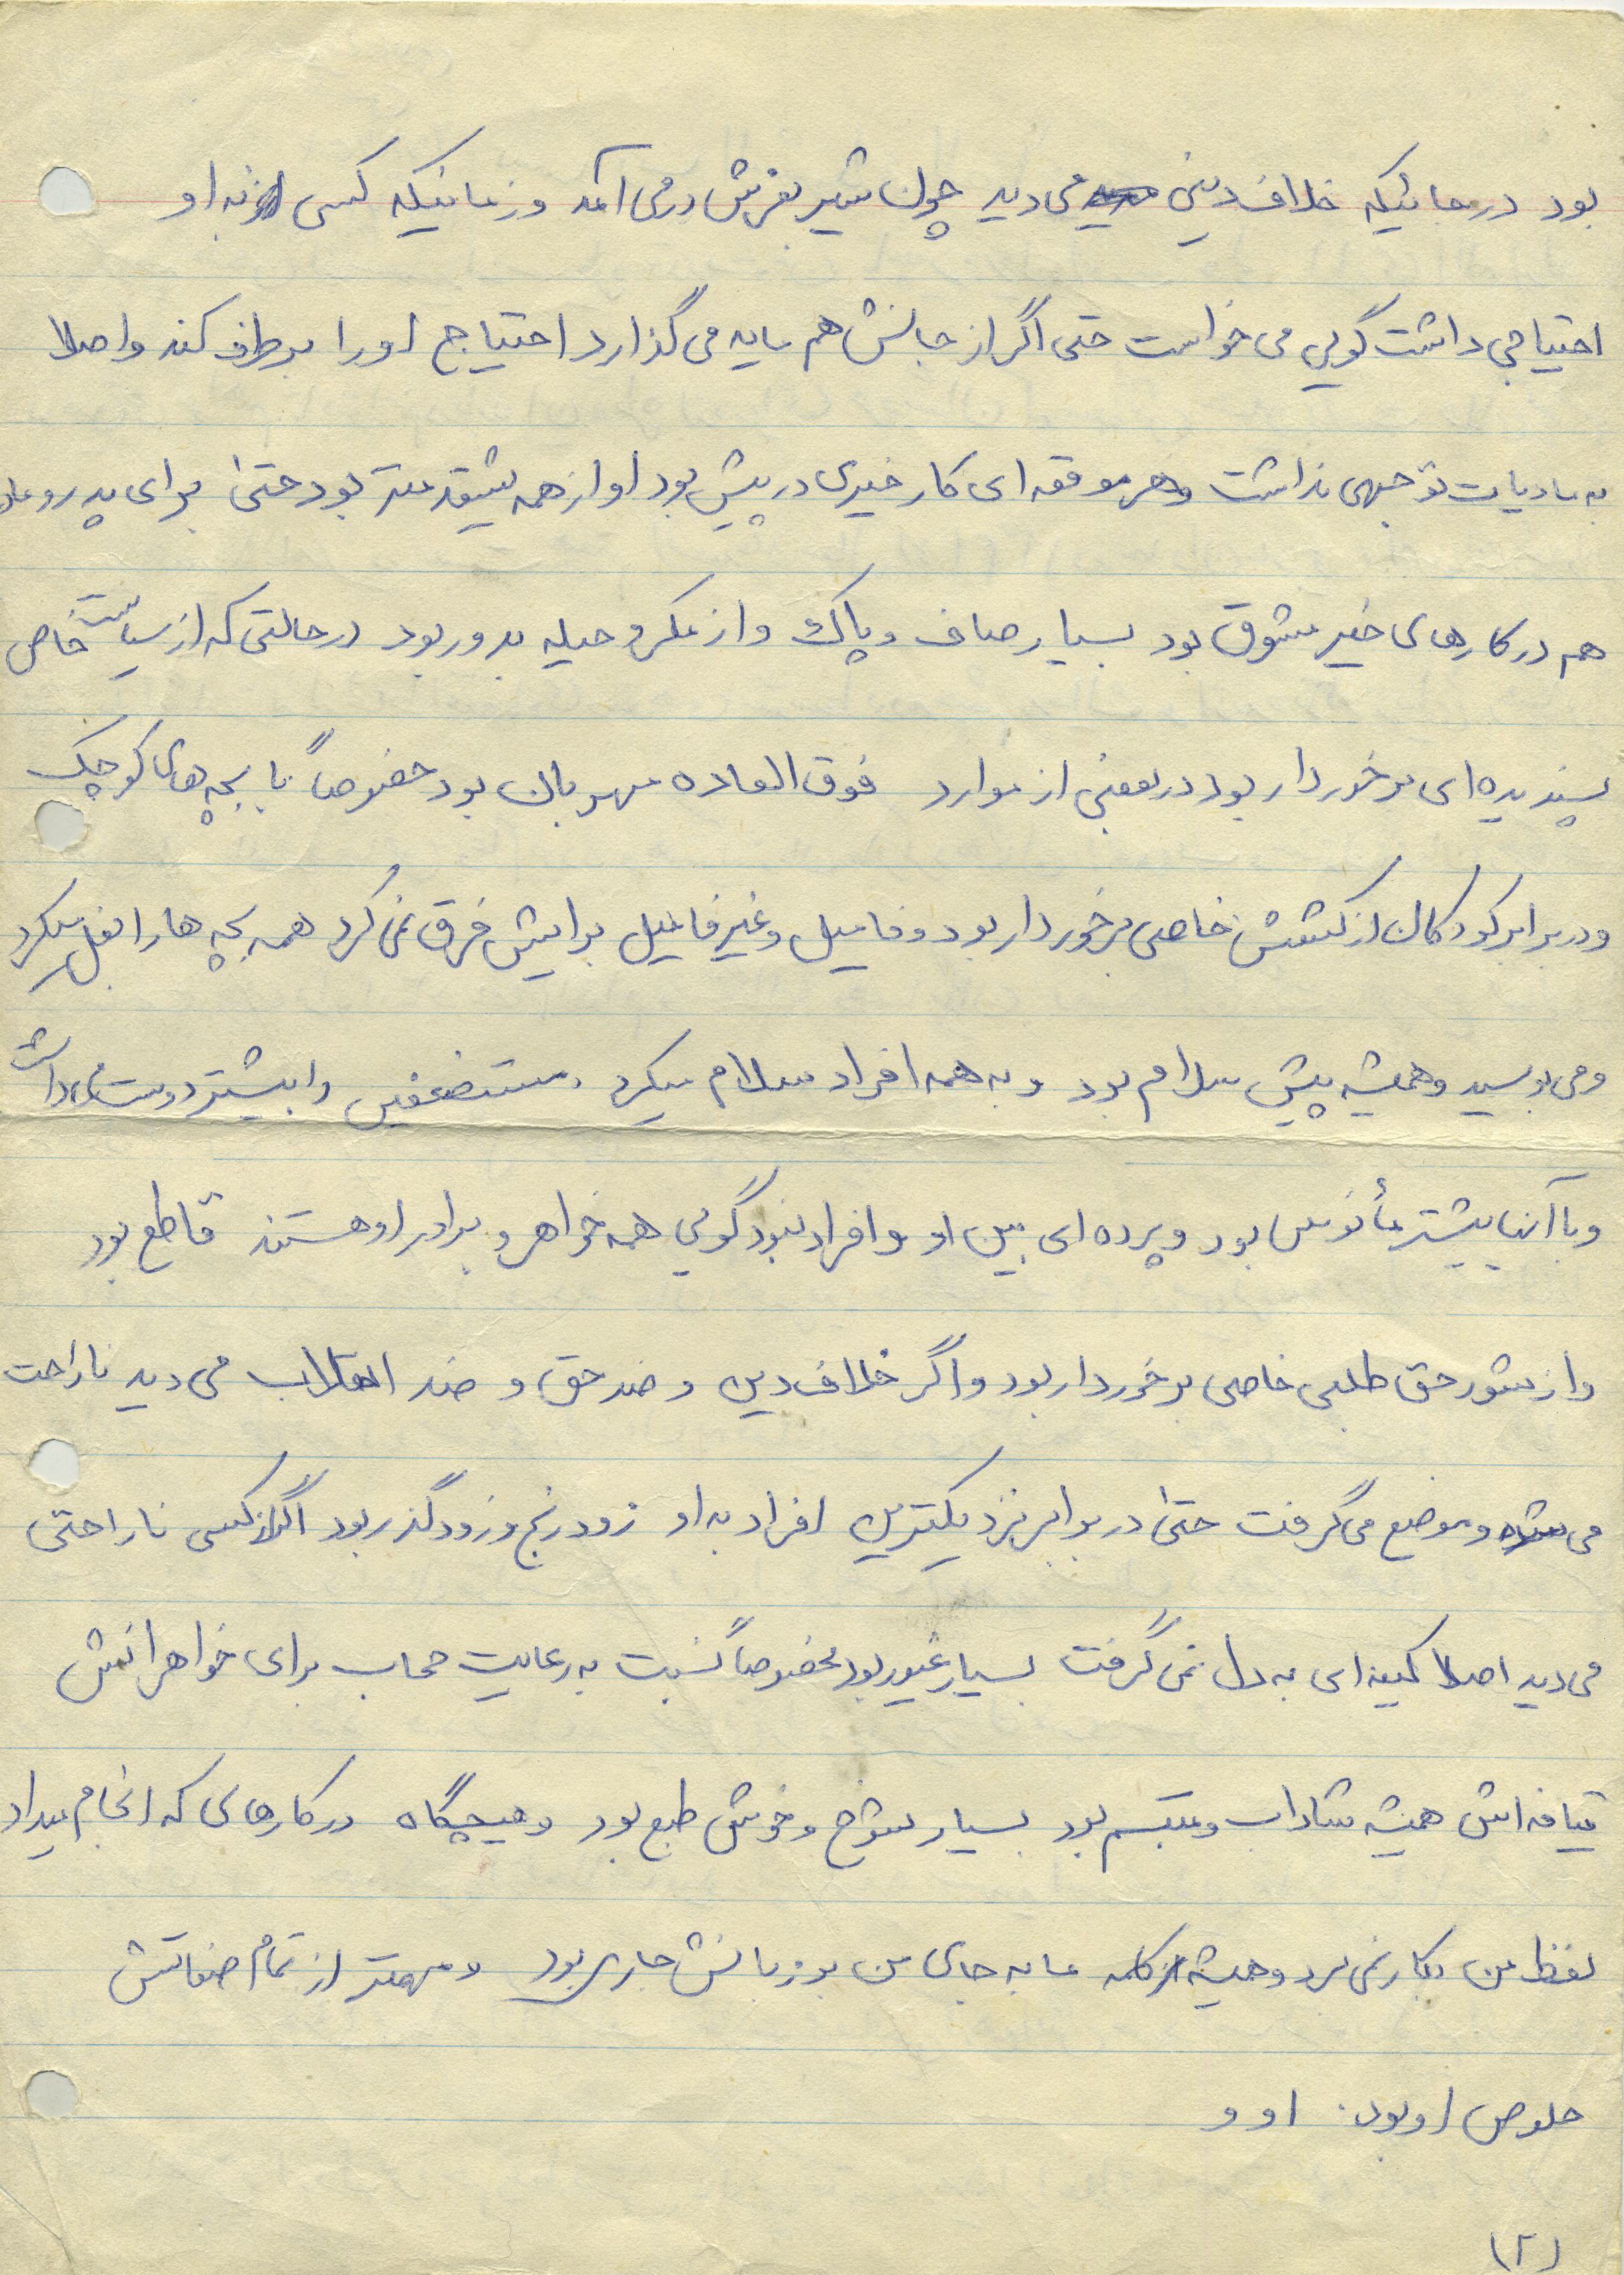 بود در حالیکه خلاف دینی می دید چون شیر بغرش در می آمد و زمانیکه کسی به او
احتیاجی داشت گویی می خواست حتی اگر از جانش هم مایه می گذارد احتیاج او را برطرف کند و اصلا
به مادیات توجهی نداشت و هر موقعه ای کار خیری در پیش بود او از همه پیشقدمتر بود حتی برای پدر و مادر
هم در کارهای خیر مشوق بود بسیار صاف و پاک و از مکر و حیله بدور بود در حالتی که از سیاست خاص
پسندیده ای برخوردار بود در بعضی از موارد فوق العاده مهربان بود خصوصاً با بچه های کوچک
و در برابر کودکان از کشش خاصی برخوردار بود و فامیل و غیر فامیل برایش فرق نمی کرد همه بچه ها را بغل میکرد
و می بوسید و همیشه پیش سلام بود و به همه افراد سلام میکرد . مستضعفین را بیشتر دوست می داشت
و با آنها بیشتر مأنوس بود و پرده ای بین او و افراد نبود گویی همه خواهر و برادر او هستند قاطع بود
و از شور حق طلبی خاصی برخوردار بود و اگر خلاف دین و ضد حق و ضد انقلاب می دید ناراحت
می شد و موضع می گرفت حتی در برابر نزدیکترین افراد به او زود رنج و زود گذر بود اگر از کسی ناراحتی
می دید اصلا کینه ای به دل نمی گرفت بسیار غیور بود مخصوصاً نسبت به رعایت حجاب برای خواهرانش
قیافه اش همیشه شاداب و متبسم بود بسیار شوخ و خوش طبع بود و هیچگاه در کارهای که انجام میداد
لفظ من بکار نمی برد و همیشه کلمه ما به جای من بر زبانش جاری بود و مهمتر از تمام صفاتش
خلوص او بود. او و
(۲)